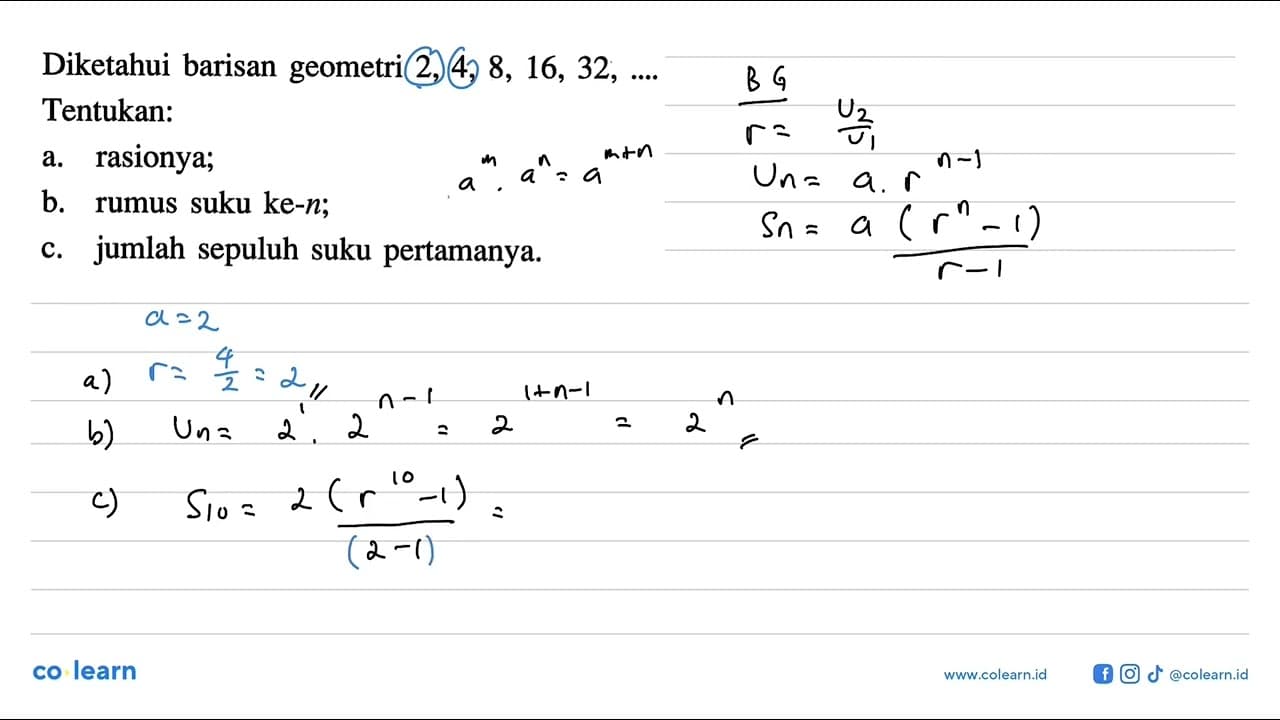 Diketahui barisan geometri 2, 4, 8, 16, 32, ....
Tentukan:
a. rasionya;
b. rumus suku ke-n;
c. jumlah sepuluh suku pertamanya.
a^m . a^n = a^(m+n)
BG
r = U2/U1
Un = a. r^(n-1)
Sn = a (r^n - 1)/(r-1)
a = 2
a) r = 4/2 = 2 //
b) Un = 2^1 . 2^(n-1) = 2^(1+n-1) = 2^n //
c) S10 = 2 (r^10 - 1)/(2-1) =
co learn
www.colearn.id @colearn.id